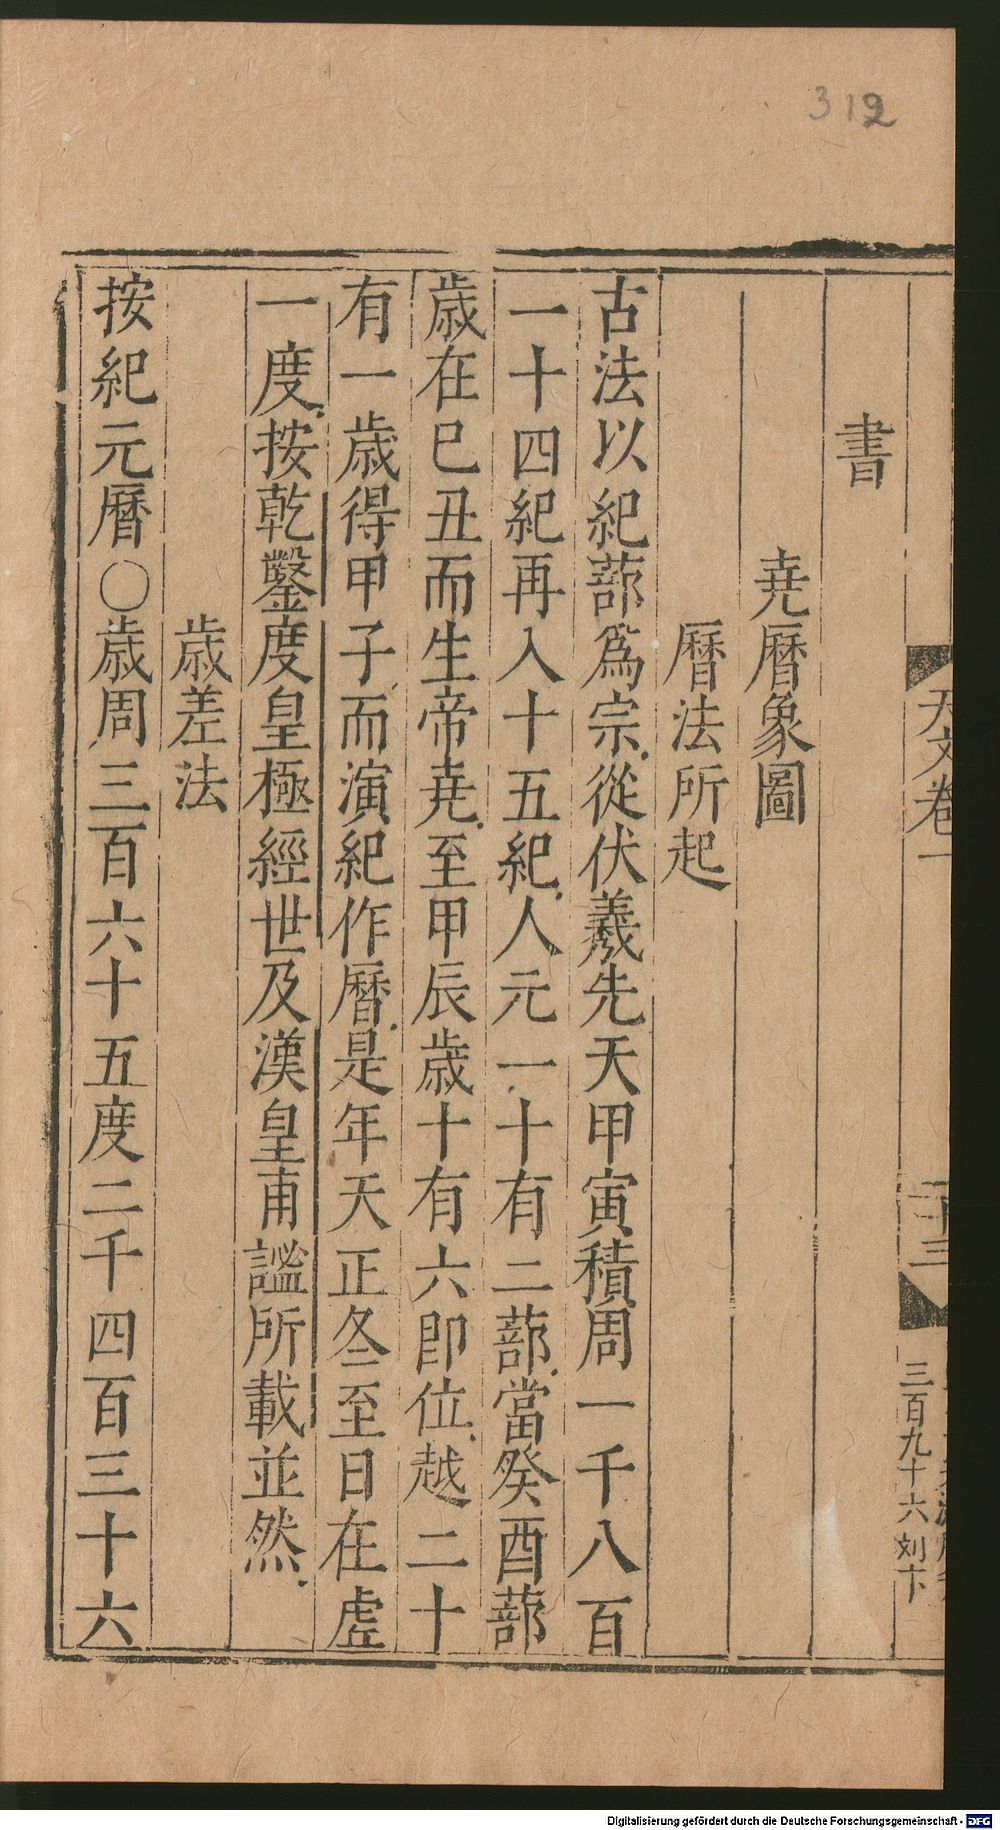 312
天文卷一
三百九十六刘卞
書
尭曆象圖
曆法所起
古法以紀蔀爲宗從伏羲先天甲寅積周一千八百
一十四紀再入十五紀人元一十有二蔀當癸酉蔀
歲在巳丑而生帝尭至甲辰歲十有六即位越二十
有一歲得甲子而演紀作曆是年天正冬至日在虗
一度按乾鑿度皇極經世及漢皇甫謐所載並然
歲差法
按紀元曆○歲周三百六十五度二千四百三十六
Digitalisierung gefördert durch die Deutsche Forschungsgemeinschaft - DFG